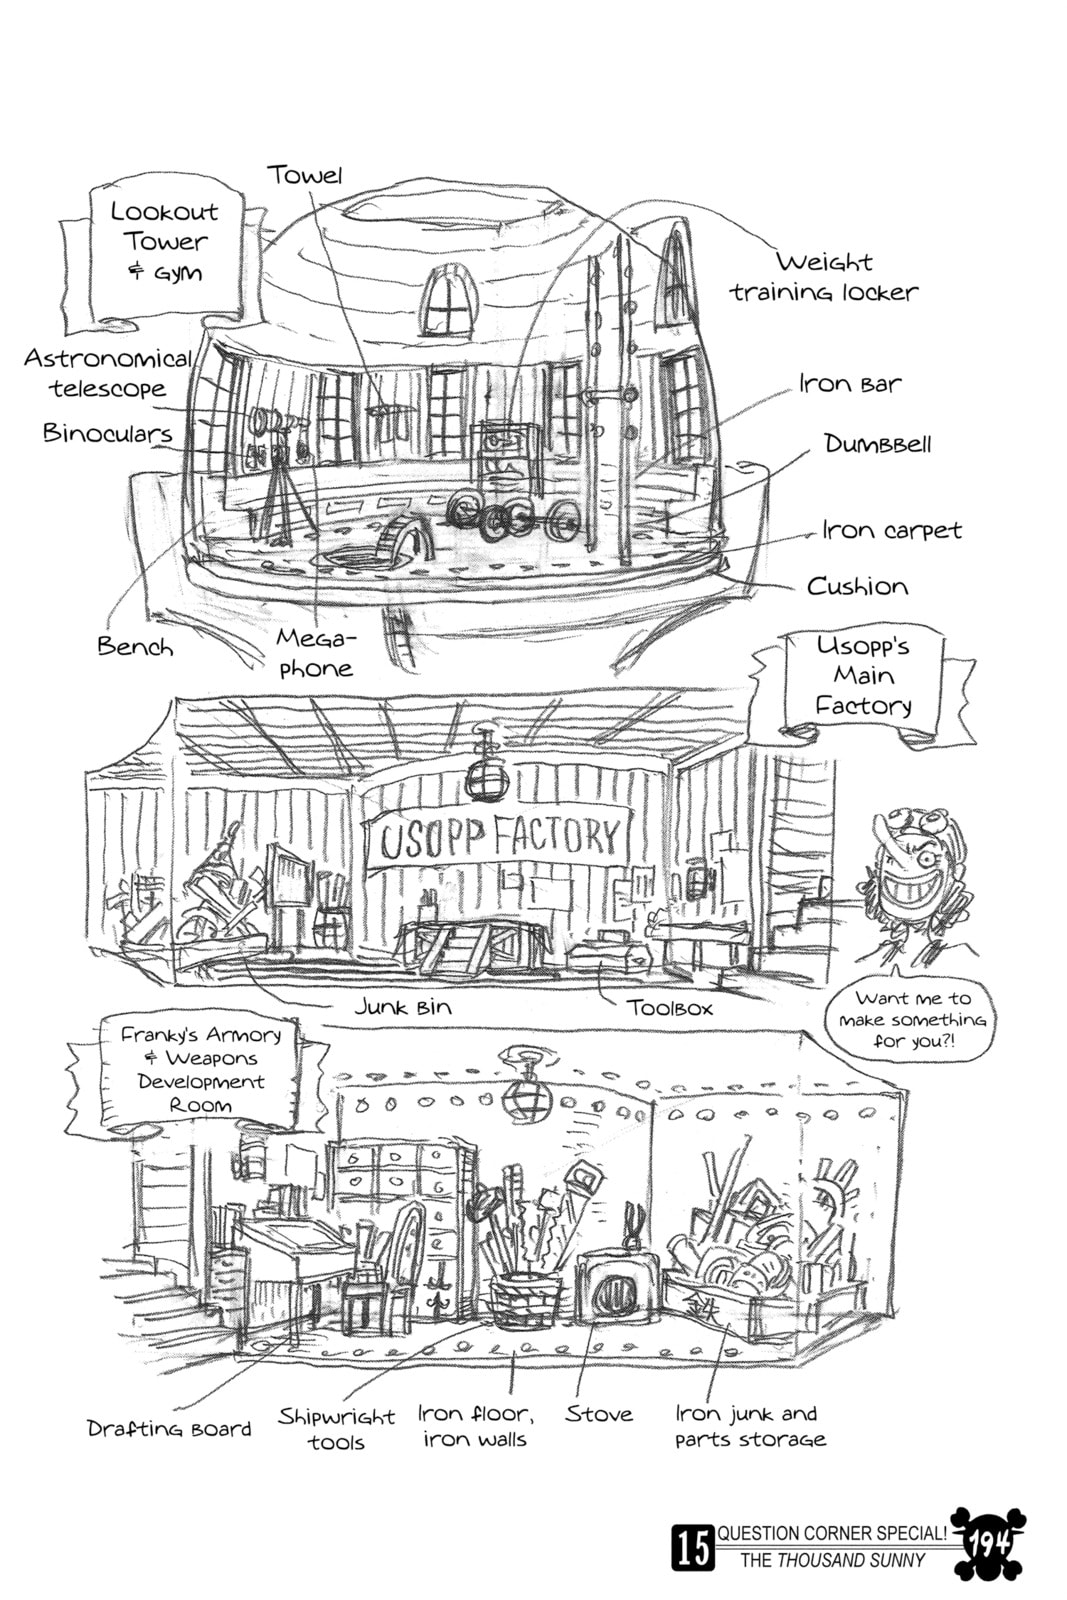 Towel
Lookout
Tower
& Gym
Weight
training locker
Astronomical
telescope
Binoculars
Iron Bar
Dumbbell
Iron carpet
Cushion
Bench
Mega-
phone
Usopp's
Main
Factory
USOPP FACTORY
Junk Bin
Toolbox
Want me to
make something
for you?!
Franky's Armory
& Weapons
Development
Room
鉄
Drafting Board
Shipwright
tools
Iron floor,
iron walls
Stove
Iron junk and
parts storage
15
QUESTION CORNER SPECIAL!
THE THOUSAND SUNNY
194